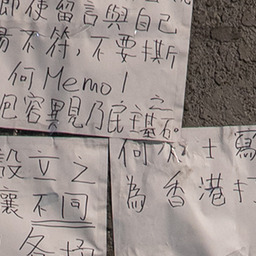 即使留言與自己
場不符,不要撕
何Memo!
包容異見乃民主基石。
設立之
讓不同
各
何 士 寫
為香港打